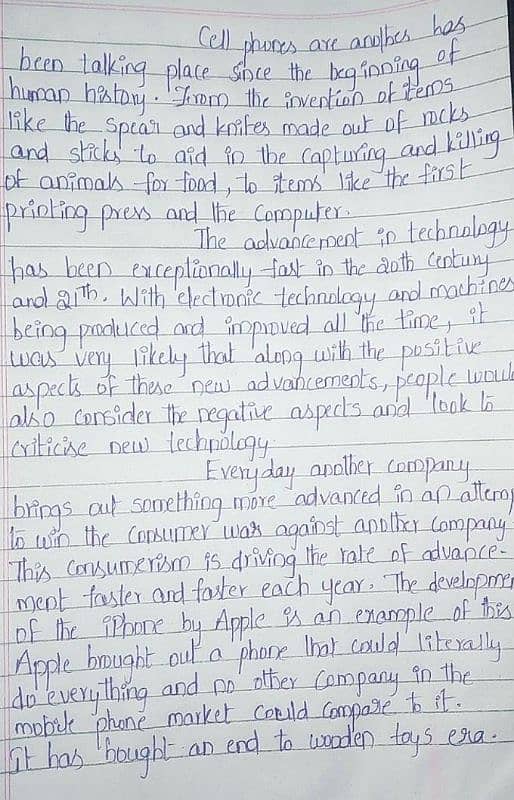 Cell phones are another has
been talking place since the beginning of
human history. From the invention of items
like the spear and knifes made out of rocks
and sticks to aid in the capturing and killing
of animals for food, to items like the first
printing press and the computer.
The advancement in technology
has been exceptionally fast in the 20th century
and 21th. With electronic technology and machines
being produced and improved all the time, it
was very likely that along with the positive
aspects of these new advancements, people woul
also consider the negative aspects and look to
criticise new technology.
Everyday another company
brings out something more advanced in an attemp
to win the consumer war against another company
This consumerism is driving the rate of advance-
ment faster and faster each year. The developmen
of the iPhone by Apple is an example of this
Apple brought out a phone that could literally
do everything and no other company in the
mobile phone market could compare to it.
It has bought an end to wooden toys era.